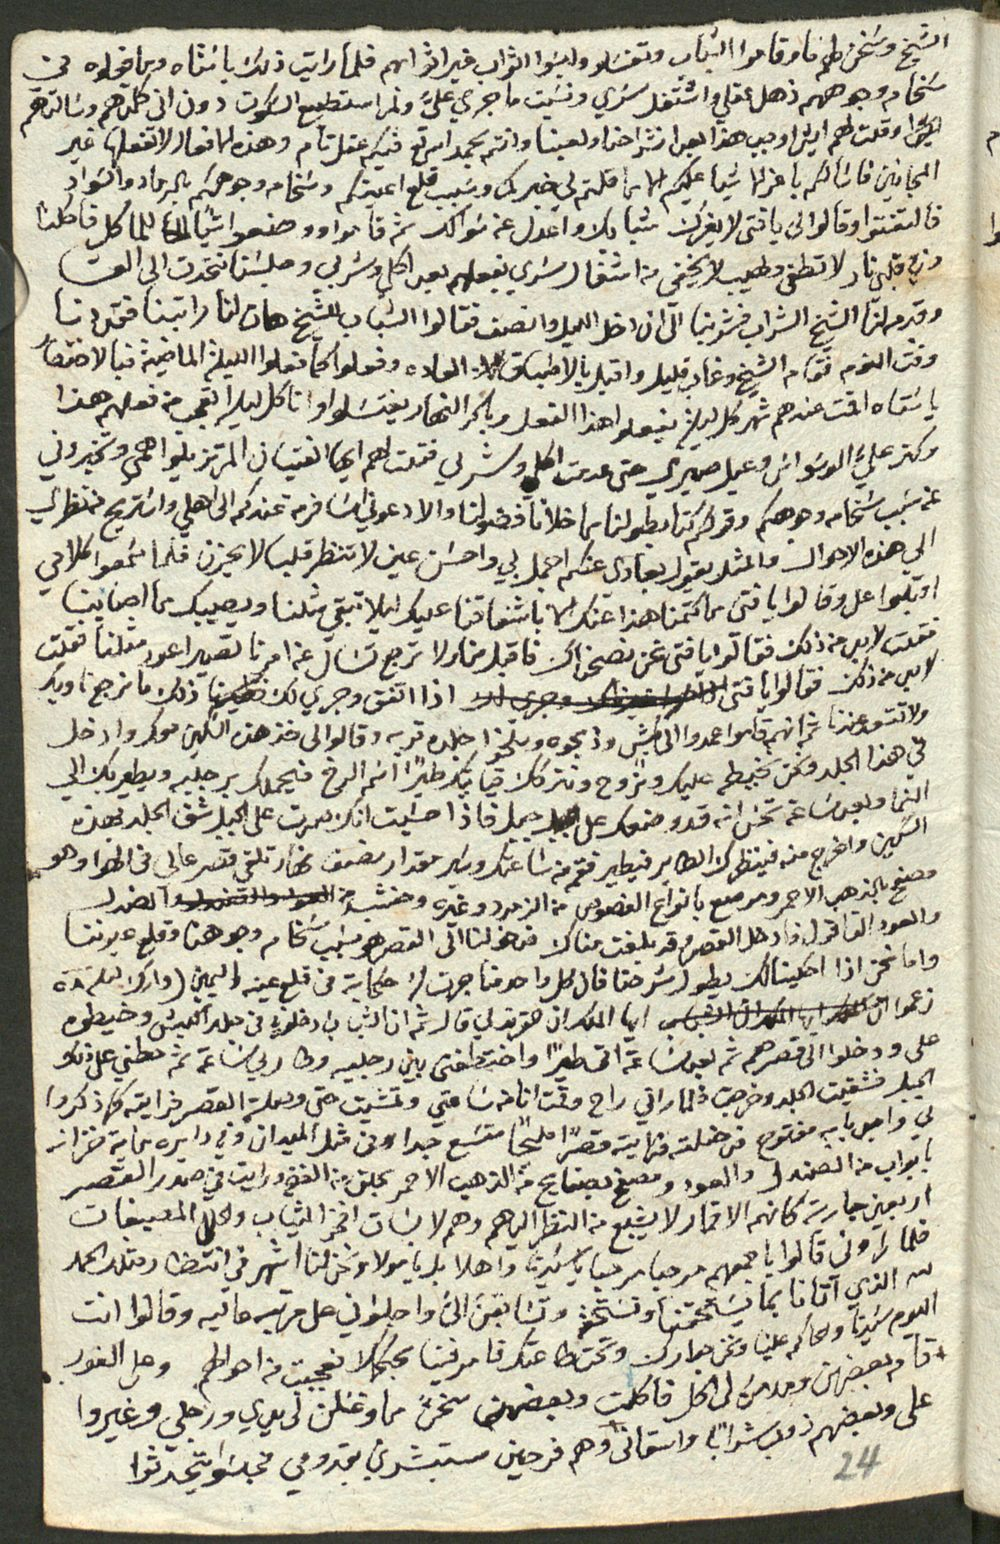 الشيخ وسخن لهم ماء وقاموا الشباب وتغسلو ولبسوا اثواب غير اثوابهم فلما رايت ذلك يا ستاه وما فعلوه في
سخام وجوههم ذهل عقلي واشتغل سري ونسيت ما جرى علي ولم استطيع السكوت دون اني كلمتهم وسالتهم
وقلت لهم ايش اوجب هذا بعد انشراحنا ولعبنا وانتم بحمد الله فيكم عقل تام وهذه الافعال لا تفعلها غير
المجانين فاسالكم باعز الاشيا عليكم الا ما قلتم لي خبركم وسبب قلع اعينكم وسخام وجوهكم بالرماد والسواد
فالتفتوا وقالوا لي يا فتى لا يغرك شبابك واعدل عن سوالك ثم قاموا ووضعوا شيا للماكل فاكلنا
وفي قلبي نار لا تطفى ولهيب لا يخفى من اشتغال سري بفعلهم بعد اكلي وشربي وجلسنا نتحدث الى العشا
وقدم لنا الشيخ الشراب فشربنا الى ان دخل الليل وانصف فقالوا الشباب للشيخ هات لنا راتبنا فقد دنا
وقت النوم فقام الشيخ وغاب قليل واقبل بالاطباق العاده وفعلوا كما فعلوا الليلة الماضية فبالاختصار
يا ستاه اقمت عندهم شهر كل ليلة يفعلوا هذا الفعل وباكر النهار يغتسلوا وانا كل ليلة اتعجب من فعلهم هذا
وكثر علي الوسواس وعيل صبري حتى عدمت اكلي وشربي فقلت لهم ايها الفتيان الم تزيلوا همي وتخبروني
عن سبب سخام وجوهكم وقولكم كنا بطولنا ما خلانا فضولنا والا دعوني اسافر من عندكم الى اهلي واستريح من نظري
الى هذه الاحوال والمثل يقول بعادي عنكم اجمل بي واحسن عين لا تنظر قلب لا يحزن فلما سمعوا كلامي
اقبلوا علي وقالوا يا فتى ما كتمنا هذا عنك الا باشفاقنا عليك ليلا تبقى مثلنا ويصيبك ما اصابنا
فقلت لا بد من ذلك فقالوا يا فتى نحن نصحناك فاقبل منا ولا ترجع تسال عن امرنا تصير اعور مثلنا فقلت
لا بد من ذلك فقالوا يا فتى اذا اتفق وجرى لك ذلك ما نرجع ناويك
ولا تقعد عندنا ثم انهم قاموا عمدوا الى كبش وذبحوه وسلخوا جلده قربه وقالوا لي خذ هذه السكين معك وادخل
في هذا الجلد ونحن نخيطه عليك ونروح ونتركك فياتيك طيرا اسمه الرخ فيحملك برجليه ويطير بك الى
السما وبعد ساعة تحس انه قد وضعك على جبل فاذا حسيت انك صرت على الجبل شق الجلد بهذه
السكين واخرج منه فينظرك الطاير فيطير فقم من ساعتك وسير مقدار نصف نهار تلقى قصر عالي في الهوا وهو
مصفح بالذهب الاحمر ومرصع بانواع الفصوص من الزمرد وغيره وخشبه من الصندل
والعود القاقلي فادخل القصر وقد بلغت مناك فدخولنا الى القصر هو سبب سخام وجوهنا وقلع عيوننا
واما نحن اذا احكينا لك يطول شرحنا فان كل واحد منا جرت له حكاية في قلع عينه اليمين
زعموا ايها الملك ان القرندلي قال ثم ان الشباب ادخلوني في جلد الكبش وخيطوه
علي ودخلوا الى قصرهم ثم بعد ساعة اتى طيرا واختطفني بين رجليه وطار بي ساعة ثم حطني على ذلك
الجبل فشقيت الجلد وخرجت فلما راني راح وقمت انا من ساعتي وتمشيت حتى وصلت القصر فرايته كما ذكروا
لي واجد بابه مفتوح فدخلته فرايته قصرا مليحا متسع جدا وفي مثل الميدان وفي دايره ماية خزانه
بابواب من الصندل والعود ومصفح بصفايح من الذهب الاحمر بحلق من الفضة ورايت في صدر القصر
اربعين جارية كانهم الاقمار لا يشبع من النظر اليهم وهم لابسات افخر الثياب والحلي المصيغات
فلما راوني قالوا باجمعهم مرحبا مرحبا يا سيدنا واهلا بك يا مولانا نحن لنا اشهر في انتظار مثلك الحمد
لله الذي آتانا بما يستحقنا ونستحقه وتسابقن الي واجلسوني على مرتبه عاليه وقالوا انت
اليوم سيدنا والحاكم علينا ونحن جوارك وتحت طاعتك فامر فينا بحكمك فعجبت من احوالهم وعلى الفور
قام بعضهن وقدمن لي الاكل فاكلت وبعضهن سخن ما وغسلن لي يدي ورجلي وغيروا
علي وبعضهم ذوب شرابا واسقاني وهم فرحين مستبشرين بقدومي فجلسوا يتحدثوا
24